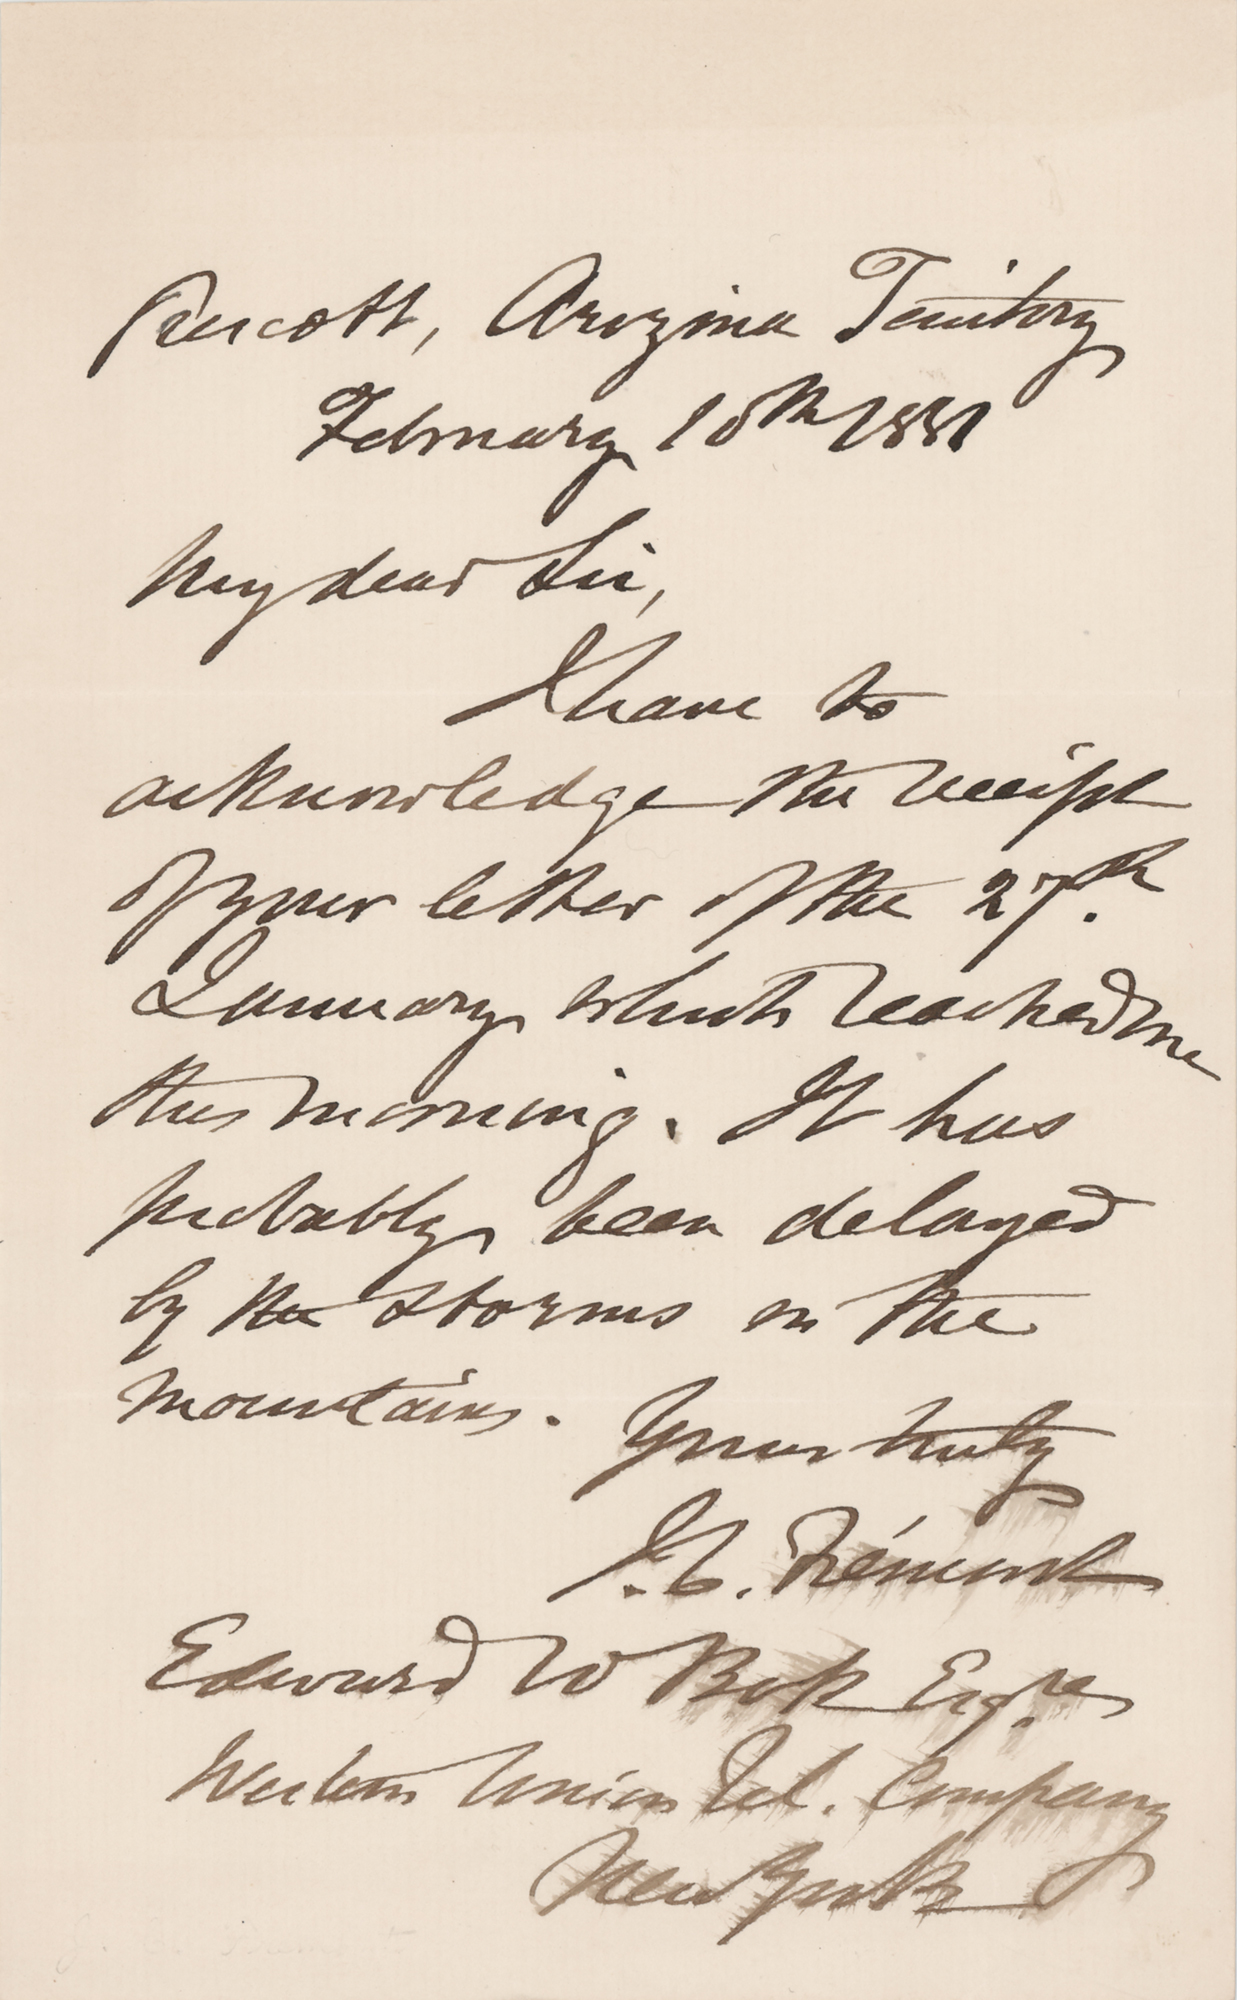 Prescott, Arizona Territory
February 10th 1881
My dear Sir,
I have to
acknowledge the receipt
of your letter of the 27th.
January which reached me
this morning. It has
probably been delayed
by the storms in the
mountains.
Yours truly
J. C. Frémont
Edward W Bok Esqre
Western Union Tel. Company
New York